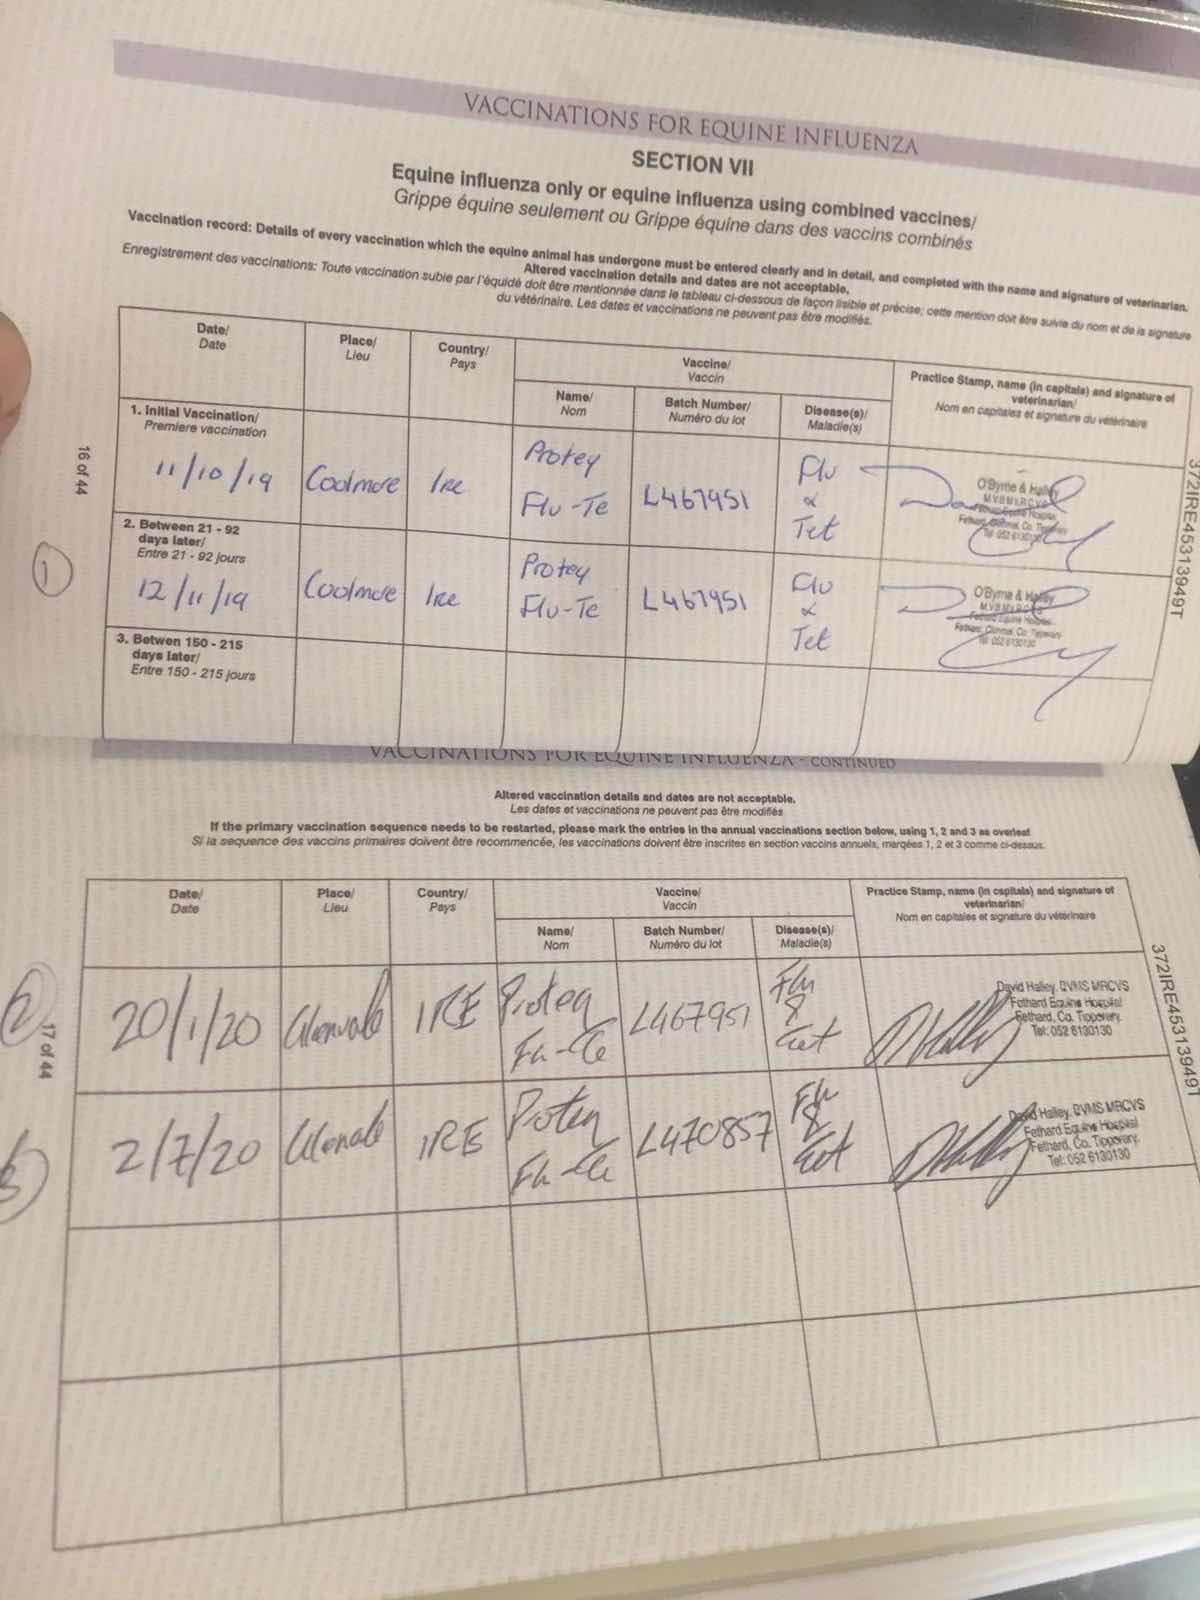 VACCINATIONS FOR EQUINE INFLUENZA
SECTION VII
Equine influenza only or equine influenza using combined vaccines/
Grippe équine seulement ou Grippe équine dans des vaccins combinés
Vaccination record: Details of every vaccination which the equine animal has undergone must be entered clearly and in detail, and completed with the name and signature of veterinarian.
Altered vaccination details and dates are not acceptable.
Enregistrement des vaccinations: Toute vaccination subie par l'équidé doit être mentionnée dans le tableau ci-dessous de façon lisible et précise; cette mention doit être suivie du nom et de la signature
du vétérinaire. Les dates et vaccinations ne peuvent pas être modifiés.
Date/
Date
Place/
Lieu
Country/
Pays
Vaccine/
Vaccin
Name/
Nom
Batch Number/
Numéro du lot
Disease(s)/
Maladie(s)
Practice Stamp, name (in capitals) and signature of
veterinarian/
Nom en capitales et signature du vétérinaire
1. Initial Vaccination/
Premiere vaccination
11/10/19 Coolmore Ire
Protey
Flu-Te
L467951
Flu
&
Tet
O'Byrne & Halley
M.V.B M.R.C.V.S
Fethard Equine Hospital,
Fethard, Clonmel, Co. Tipperary
Tel: 052 6130130
2. Between 21 - 92
days later/
Entre 21 - 92 jours
12/11/19 Coolmore Ire
Protey
Flu-Te
L467951
Flu
&
Tet
O'Byrne & Halley
M.V.B M.R.C.V.S
Fethard Equine Hospital,
Fethard, Clonmel, Co. Tipperary
Tel: 052 6130130
3. Betwen 150 - 215
days later/
Entre 150 - 215 jours
16 of 44
1
372IRE45313949T
VACCINATIONS FOR EQUINE INFLUENZA - CONTINUED
Altered vaccination details and dates are not acceptable.
Les dates et vaccinations ne peuvent pas être modifiés
If the primary vaccination sequence needs to be restarted, please mark the entries in the annual vaccinations section below, using 1, 2 and 3 as overleaf
Si la sequence des vaccins primaires doivent être recommencée, les vaccinations doivent être inscrites en section vaccins annuels, marqées 1, 2 et 3 comme ci-dessus.
Date/
Date
Place/
Lieu
Country/
Pays
Vaccine/
Vaccin
Name/
Nom
Batch Number/
Numéro du lot
Disease(s)/
Maladie(s)
Practice Stamp, name (in capitals) and signature of
veterinarian/
Nom en capitales et signature du vétérinaire
2
20/1/20 Glenvale IRE
Proteq
Flu-Te
L467951
Flu
&
Tet
David Halley, DVMS MRCVS
Fethard Equine Hospital
Fethard, Co. Tipperary.
Tel: 052 6130130
3
2/7/20 IRE
Flu-Te
L470857
Flu
&
Tet
David Halley, DVMS MRCVS
Fethard Equine Hospital
Fethard, Co. Tipperary.
Tel: 052 6130130
17 of 44
372IRE45313949T